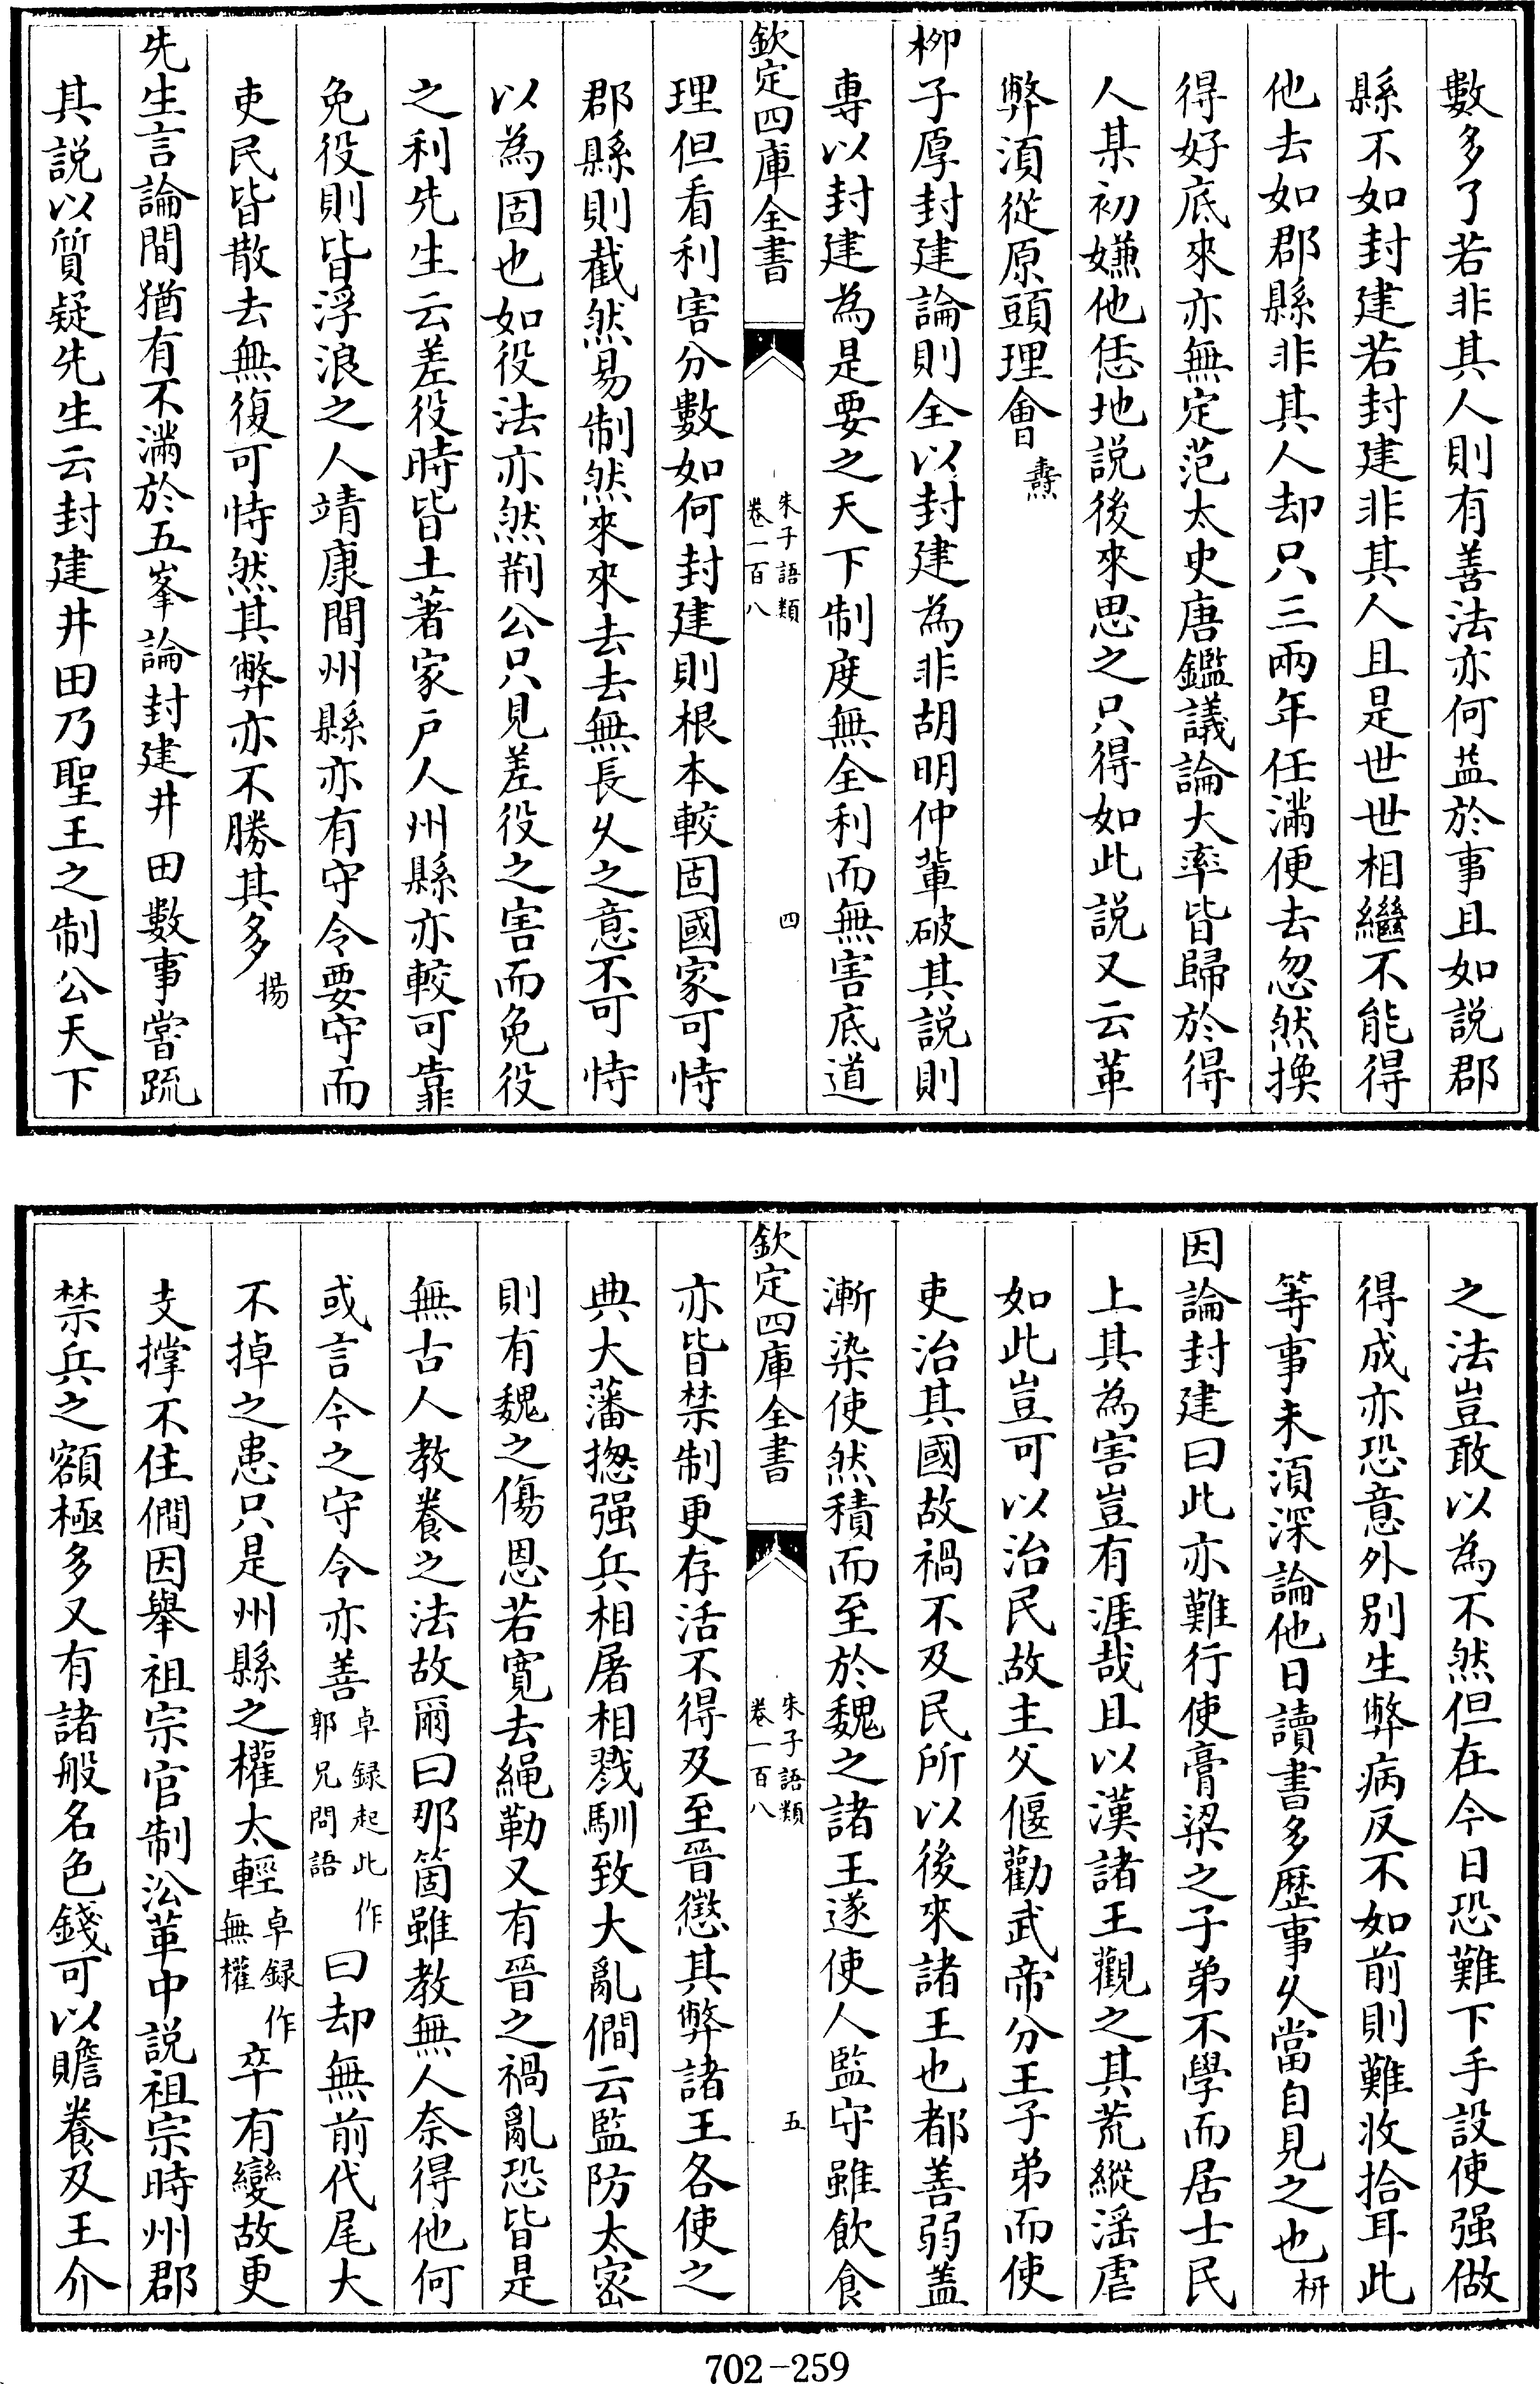 數多了若非其人則有善法亦何益於事且如説郡
縣不如封建若封建非其人且是世世相繼不能得
他去如郡縣非其人却只三兩年任滿便去忽然換
得好底來亦無定范太史唐鑑議論大率皆歸於得
人某初嫌他恁地説後來思之只得如此説又云革
弊須從原頭理會燾
柳子厚封建論則全以封建為非胡明仲輩破其説則
專以封建為是要之天下制度無全利而無害底道
欽定四庫全書
朱子語類
卷一百八
四
理但看利害分數如何封建則根本較固國家可恃
郡縣則截然易制然來來去去無長久之意不可恃
以為固也如役法亦然荆公只見差役之害而免役
之利先生云差役時皆土著家户人州縣亦較可靠
免役則皆浮浪之人靖康間州縣亦有守令要守而
吏民皆散去無復可恃然其弊亦不勝其多揚
先生言論間猶有不滿於五峯論封建井田數事嘗疏
其説以質疑先生云封建井田乃聖王之制公天下
之法豈敢以為不然但在今日恐難下手設使强做
得成亦恐意外别生弊病反不如前則難收拾耳此
等事未須深論他日讀書多歴事久當自見之也枅
因論封建曰此亦難行使膏粱之子弟不學而居士民
上其為害豈有涯哉且以漢諸王觀之其荒縱滛虐
如此豈可以治民故主父偃勸武帝分王子弟而使
吏治其國故禍不及民所以後來諸王也都善弱蓋
漸染使然積而至於魏之諸王遂使人監守雖飲食
欽定四庫全書
朱子語類
卷一百八
五
亦皆禁制更存活不得及至晉懲其弊諸王各使之
典大藩揔强兵相屠相戮馴致大亂僩云監防太宻
則有魏之傷恩若寛去繩勒又有晉之禍亂恐皆是
無古人教養之法故爾曰那箇雖教無人奈得他何
或言今之守令亦善卓録起此作郭兄問語曰却無前代尾大
不掉之患只是州縣之權太輕卓録作無權卒有變故更
支撑不住僩因舉祖宗官制沿革中説祖宗時州郡
禁兵之額極多又有諸般名色錢可以贍養及王介
702-259